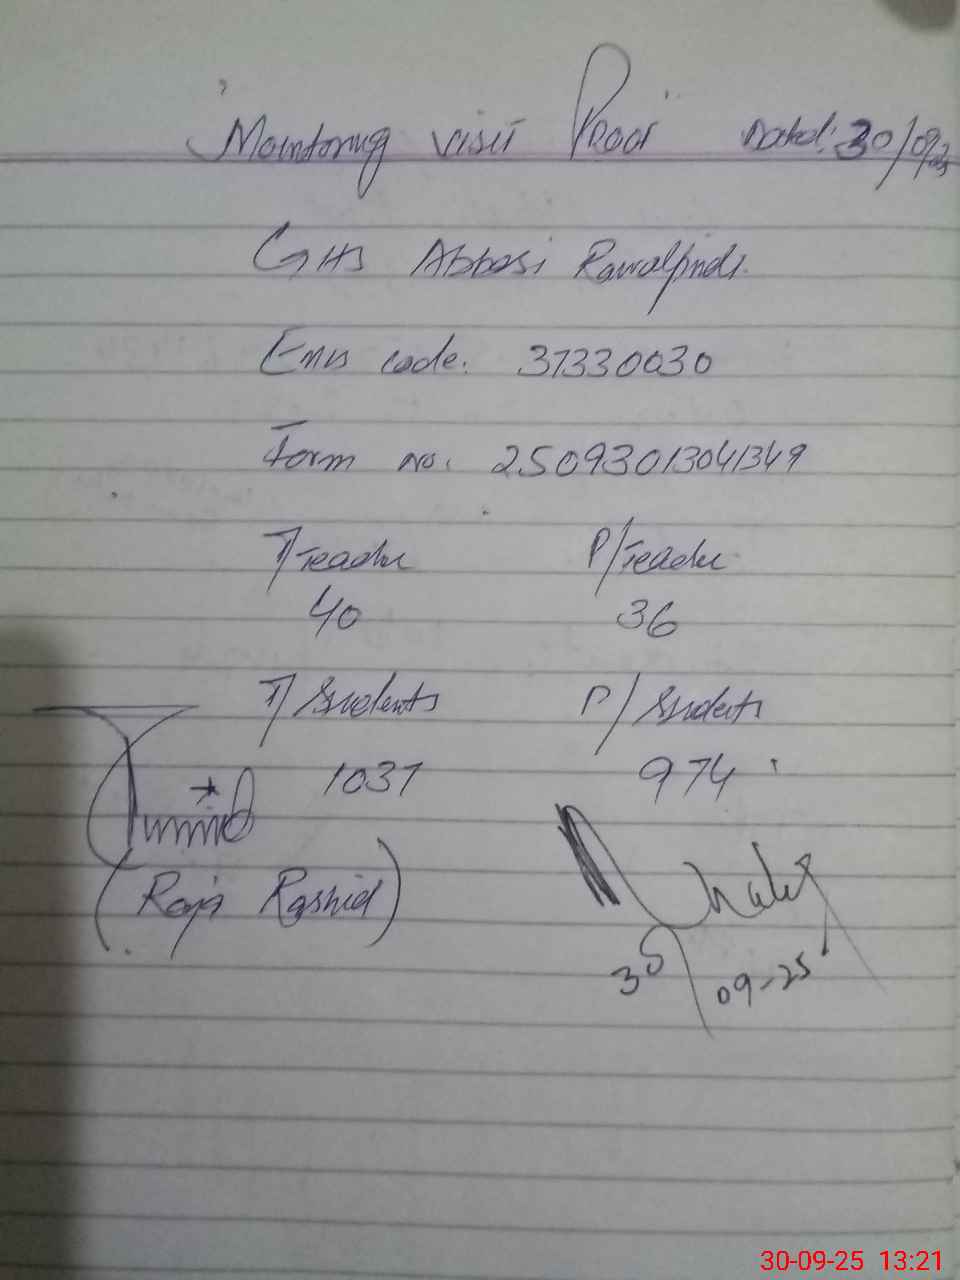 Monitoring visit Proof Dated: 30/09/25
GHS Abbasi Rawalpindi.
Emis code: 37330030
Form no. 25093013041349
T/Teacher P/Teacher
40 36
T/Students P/Students
1037 974
(Raja Rashid)
30/09-25
30-09-25 13:21